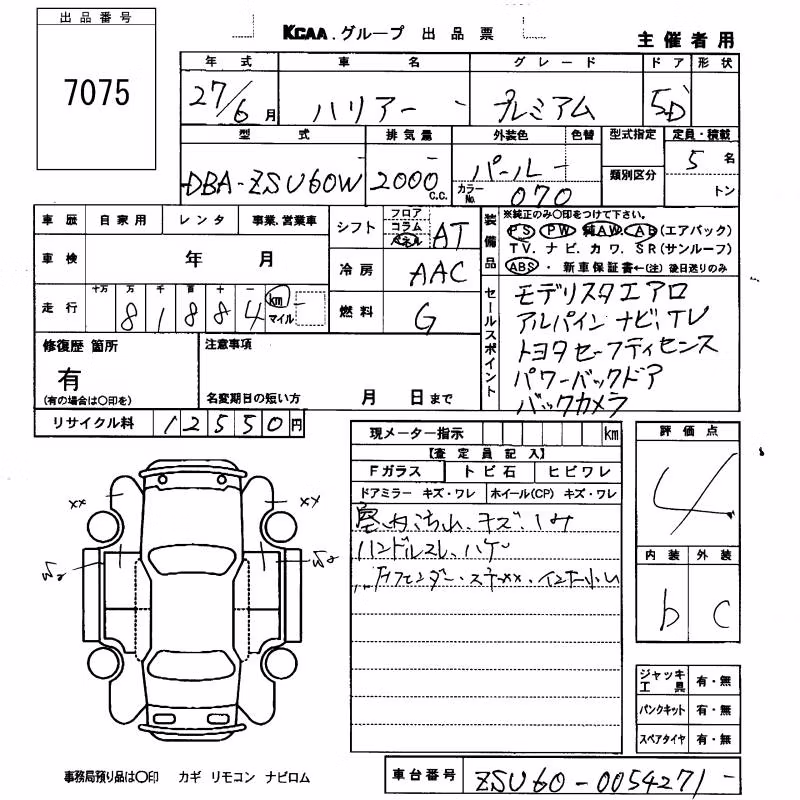 出品番号
7075
KCAA.グループ 出品票
主催者用
年式 車名 グレード ドア 形状
27/6月 ハリアー プレミアム 5D
型式 排気量 外装色 色替 型式指定 定員・積載
DBA-ZSU60W 2000c.c. パール 類別区分 5名
カラーNo. 070 トン
車歴 自家用 レンタ 事業.営業車
シフト フロア コラム パネル AT
装備品 ※純正のみ○印をつけて下さい。
PS PW 純AW. AB (エアバック)
TV. ナビ. カワ. SR(サンルーフ)
ABS ・ 新車保証書←(注) 後日送りのみ
車検 年 月
冷房 AAC
走行 十万 万 千 百 十 一
8 1 8 8 4 km マイル
燃料 G
セールスポイント
モデリスタエアロ
アルパイン ナビ、TV
トヨタセーフティセンス
パワーバックドア
バックカメラ
修復歴 箇所
有
(有の場合は○印を)
注意事項
名変期日の短い方 月 日まで
リサイクル料 12550円
現メーター指示 km
【査定員記入】
Fガラス トビ石 ヒビワレ
ドアミラー キズ・ワレ ホイール(CP) キズ・ワレ
室内汚れ、キズ、シミ
ハンドルスレ、ハゲ
評価点
4
内装 外装
b C
xx xy
W2 W2
ジャッキ工具 有・無
パンクキット 有・無
スペアタイヤ 有・無
事務局預り品は○印 カギ リモコン ナビロム
車台番号 ZSU60-0054271